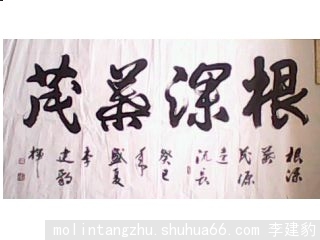 根深葉茂
根深
葉
茂源
遠
流長
癸巳
年
盛夏
李
建豹
molintangzhu.shuhua66.com 李建豹